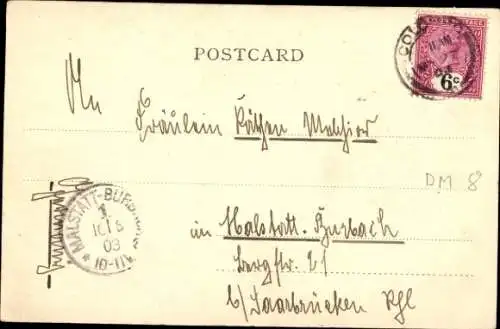 POSTCARD
6c
An
Fräulein Käthen Melchior
DM 8
MALSTATT-BURB
1
10-11V
03
in Malstatt-Burbach
Bergstr. 21
b/ Saarbrücken Rhl